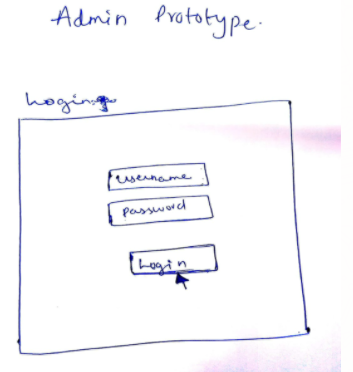 Admin Prototype.
Login
username
password
Login